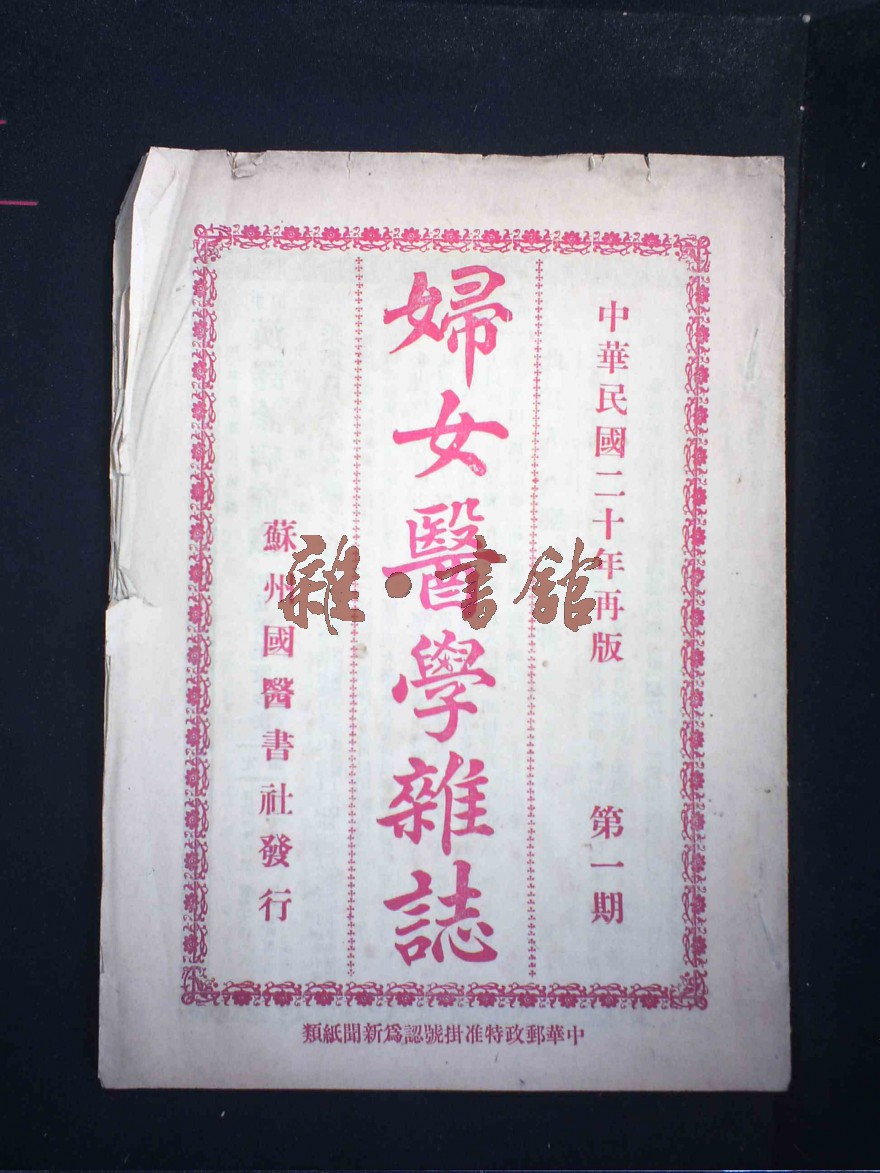 中華民國二十年再版 第一期
婦女醫學雜誌
蘇州國醫書社發行
中華郵政特准掛號認爲新聞紙類
雜·書館